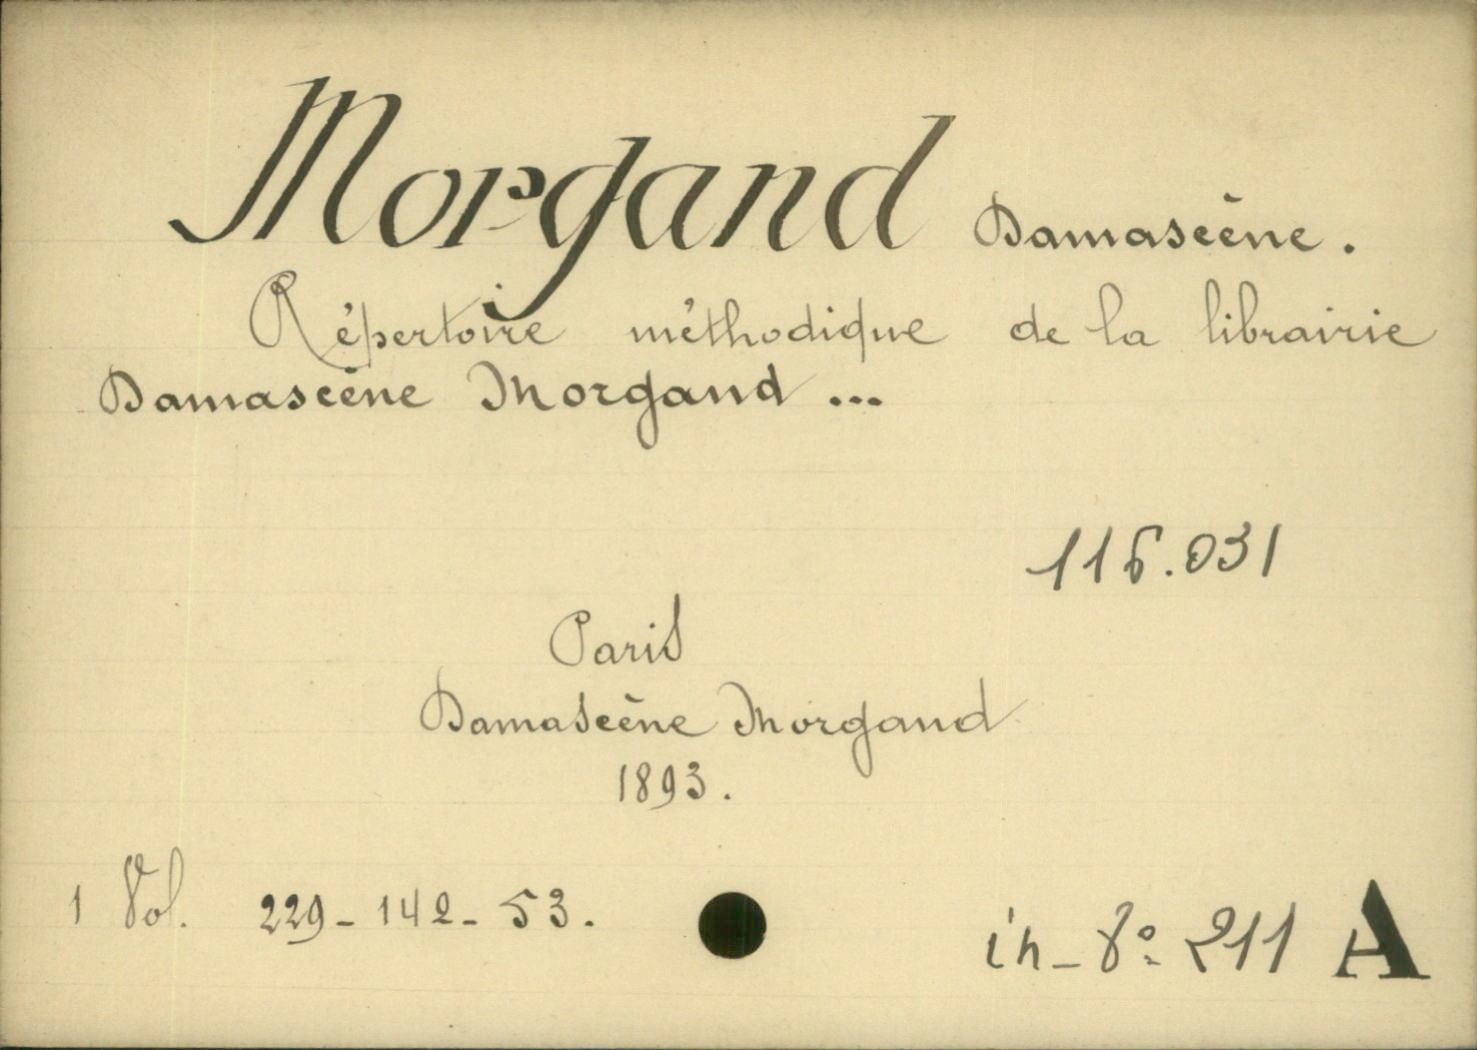 Morgand Damascène.
Répertoire méthodique de la librairie
Damascène Morgand ...
116.031
Paris
Damascène Morgand
1893.
1 Vol. 229-142-53.
in-8° 211 A